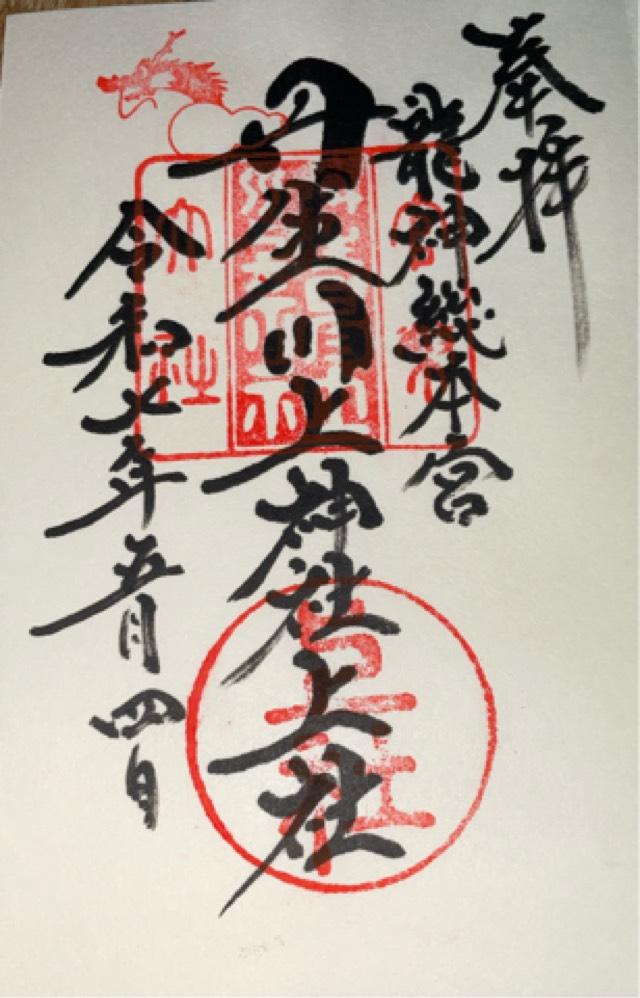 奉拝
龍神総本宮
丹生川上神社上社
令和七年五月四日
上社